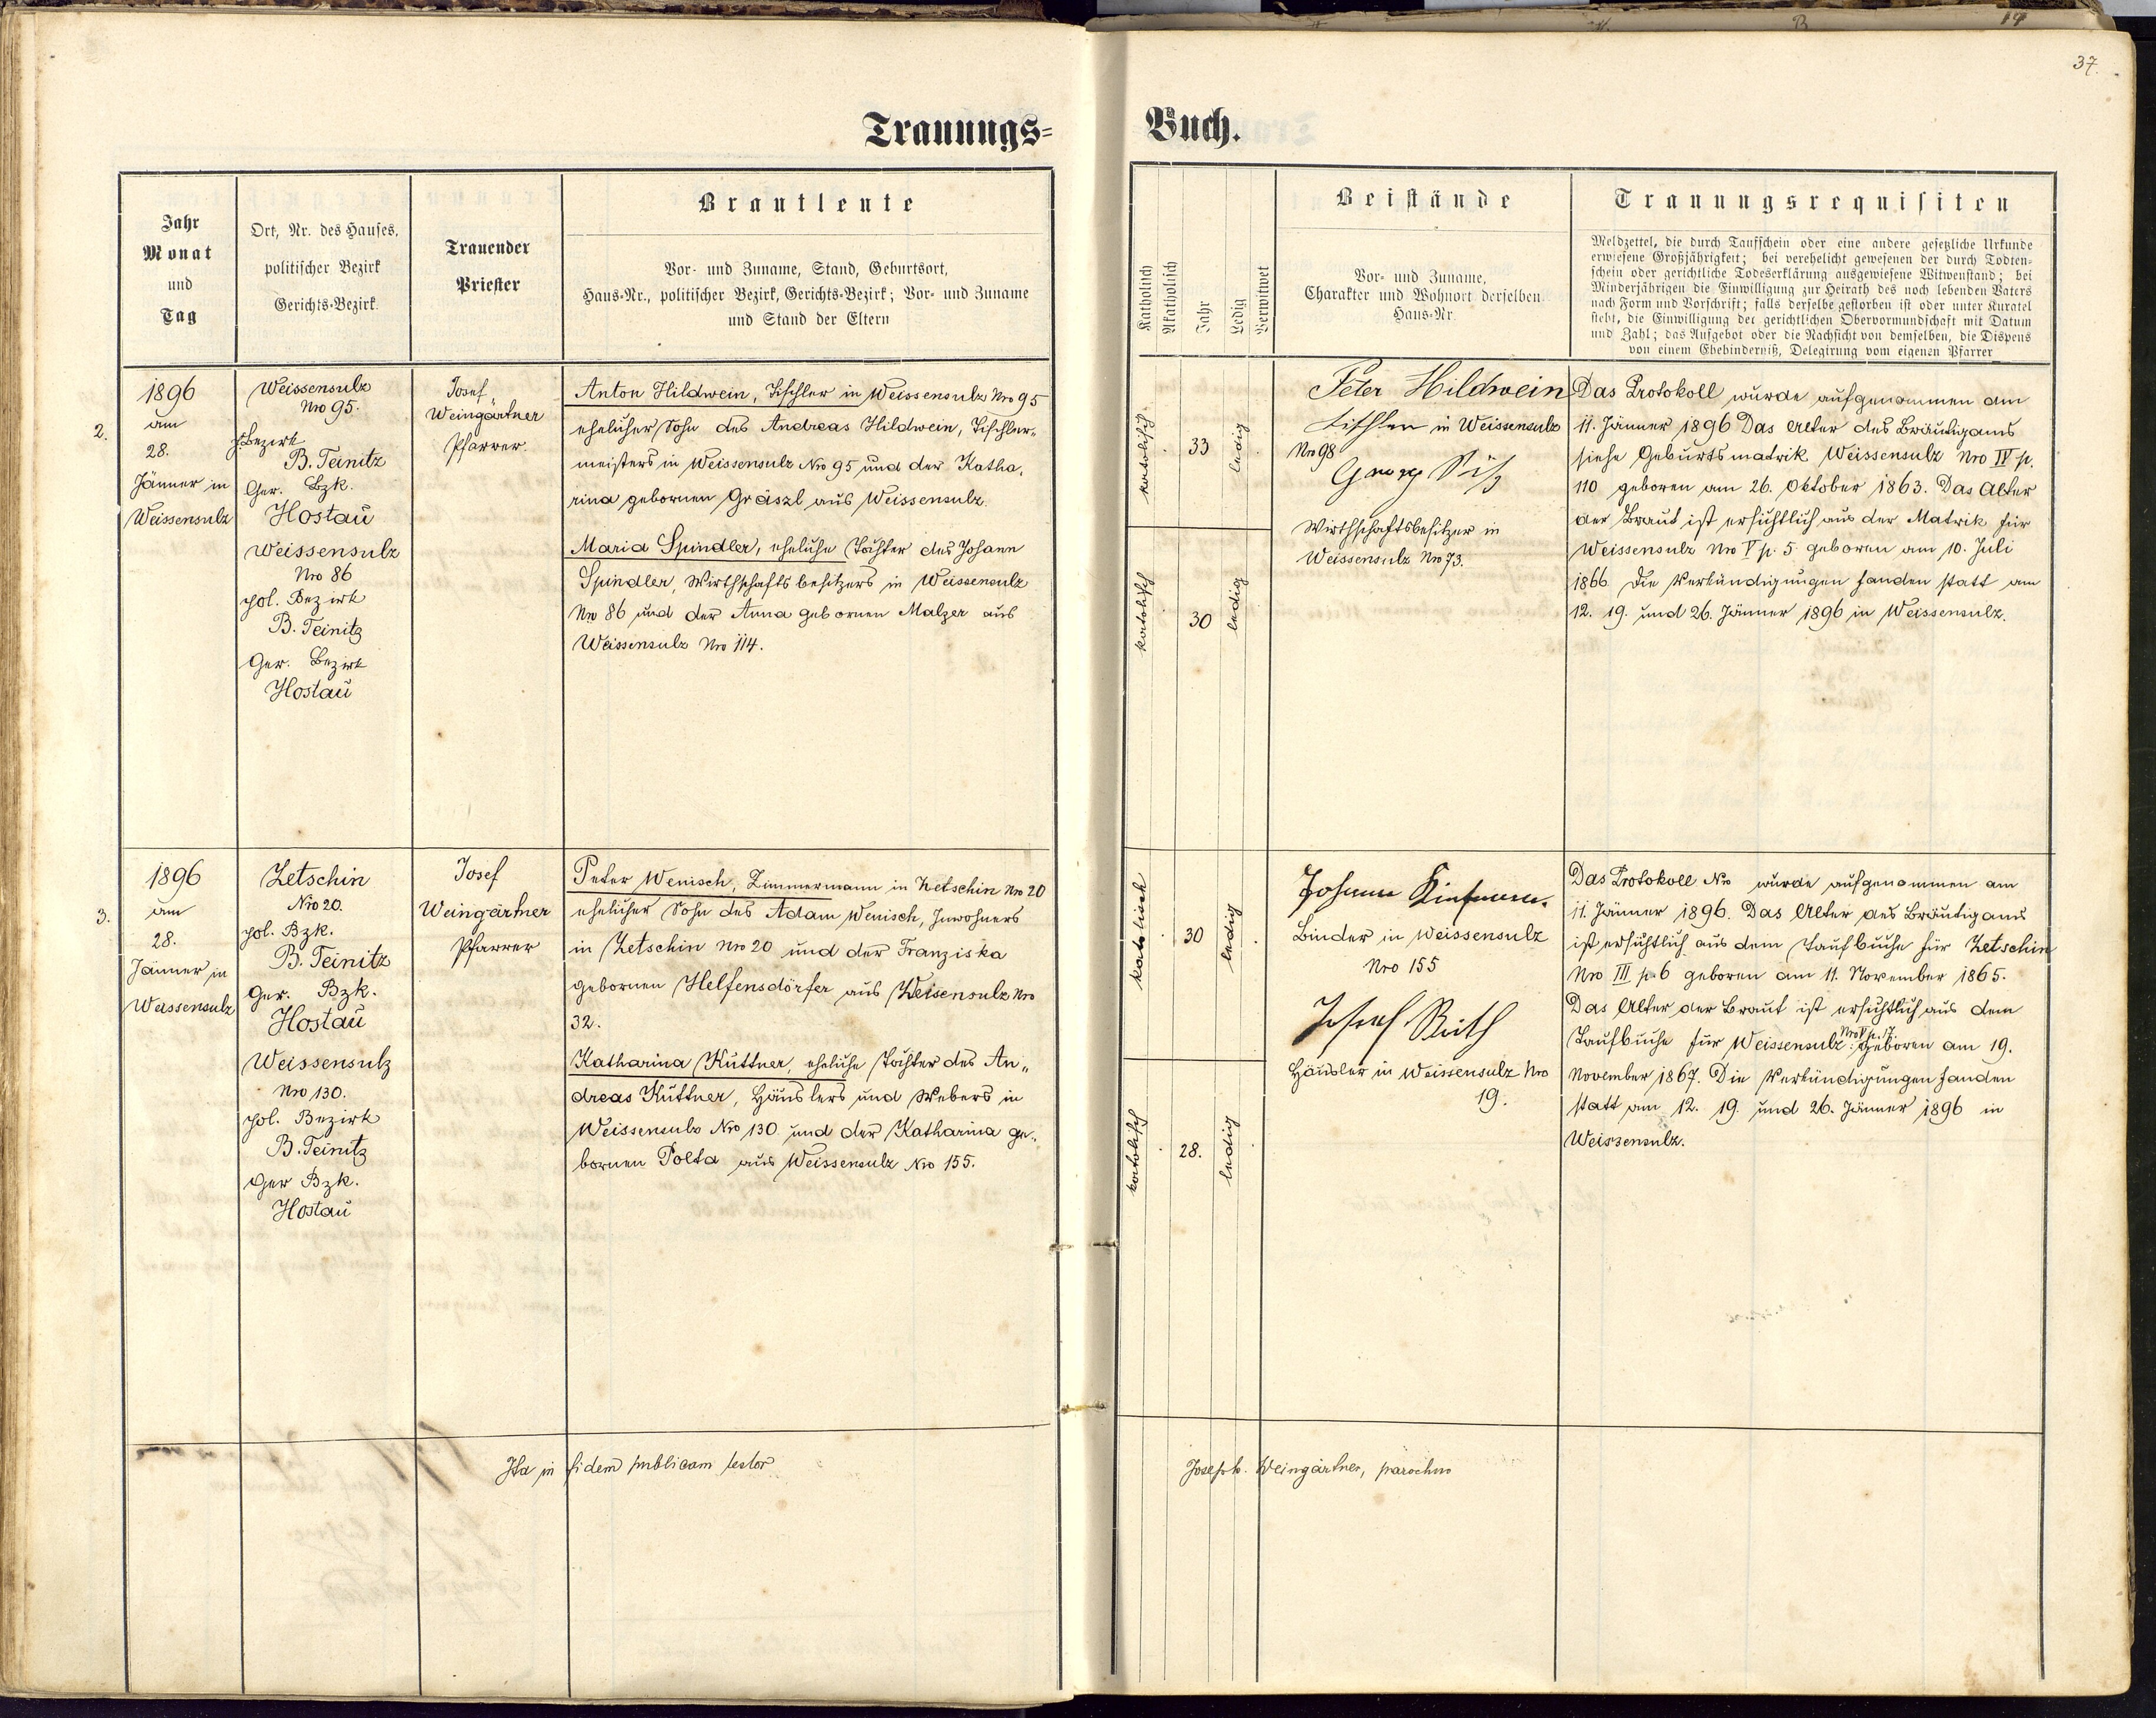 37.
Trauungs=
Buch.
Jahr
Monat
und
Tag
Ort, Nr. des Hauses,
politischer Bezirk
Gerichts-Bezirk.
Trauender
Priester
Brautleute
Vor- und Zuname, Stand, Geburtsort,
Haus-Nr., politischer Bezirk, Gerichts-Bezirk; Vor- und Zuname
und Stand der Eltern
Katholisch
Akatholisch
Jahr
Ledig
Verwitwet
Beistände
Vor- und Zuname,
Charakter und Wohnort derselben
Haus-Nr.
Trauungsrequisiten
Meldzettel, die durch Taufschein oder eine andere gesetzliche Urkunde
erwiesene Großjährigkeit; bei verehelicht gewesenen der durch Todten-
schein oder gerichtliche Todeserklärung ausgewiesene Witwenstand; bei
Minderjährigen die Einwilligung zur Heirath des noch lebenden Vaters
nach Form und Vorschrift; falls derselbe gestorben ist oder unter Kuratel
steht, die Einwilligung der gerichtlichen Obervormundschaft mit Datum
und Zahl; das Aufgebot oder die Nachsicht von demselben, die Dispens
von einem Ehehinderniß, Delegirung vom eigenen Pfarrer
2.
1896
am
28.
Jänner in
Weissensulz
Weissensulz
Nro 95.
p. Bezirk
B. Teinitz
Ger. Bzk.
Hostau
Weissensulz
Nro 86
pol. Bezirk
B. Teinitz
Ger. Bezirk
Hostau
Josef
Weingärtner
Pfarrer.
Anton Hildwein, Tischler in Weissensulz Nro 95
ehelicher Sohn des Andreas Hildwein, Tischler„
meisters in Weissensulz Nro 95 und der Katha„
rina gebornen Gräszl aus Weissensulz.
Maria Spindler, eheliche Tochter des Johann
Spindler, Wirthschaftsbesitzers in Weissensulz
Nro 86 und der Anna gebornen Malzer aus
Weissensulz Nro 114.
katholisch
33
ledig
katholisch
30
ledig
Peter Hildwein
Tischler in Weissensulz
Nro 98
Georg
Wirthschaftsbesitzer in
Weissensulz Nro 73.
Das Protokoll wurde aufgenommen am
11. Jänner 1896 Das Alter des Bräutigams
siehe Geburtsmatrik Weissensulz Nro IV p.
110 geboren am 26. Oktober 1863. Das Alter
der Braut ist ersichtlich aus der Matrik für
Weissensulz Nro V p. 5 geboren am 10. Juli
1866. Die Verkündigungen fanden statt am
12. 19. und 26. Jänner 1896 in Weissensulz.
3.
1896
am
28.
Jänner in
Weissensulz
Zetschin
Nro 20.
pol. Bzk.
B. Teinitz
Ger. Bzk.
Hostau
Weissensulz
Nro 130.
pol. Bezirk
B. Teinitz
Ger Bzk.
Hostau
Josef
Weingärtner
Pfarrer
Peter Wenisch, Zimmermann in Zetschin Nro 20
ehelicher Sohn des Adam Wenisch, Inwohners
in Zetschin Nro 20 und der Franziska
gebornen Helfensdörfer aus Weisensulz Nro
32.
Katharina Küttner, eheliche Tochter des An„
dreas Küttner, Häuslers und Webers in
Weissensulz Nro 130 und der Katharina ge„
bornen Polta aus Weissensulz Nro 155.
katolisch
30
ledig
katolisch
28.
ledig
Johann
Binder in Weissensulz
Nro 155
Josef Ruth
Häusler in Weissensulz Nro
19.
Das Protokoll Nro wurde aufgenommen am
11. Jänner 1896. Das Alter des Bräutigams
ist ersichtlich aus dem Taufbuche für Zetschin
Nro III p. 6 geboren am 11. November 1865.
Das Alter der Braut ist ersichtlich aus dem
Taufbuche für Weissensulz Nro V p. 17. geboren am 19.
November 1867. Die Verkündigungen fanden
statt am 12. 19. und 26. Jänner 1896 in
Weissensulz.
Ita in fidem publicam testor
Joseph. Weingärtner, parochus